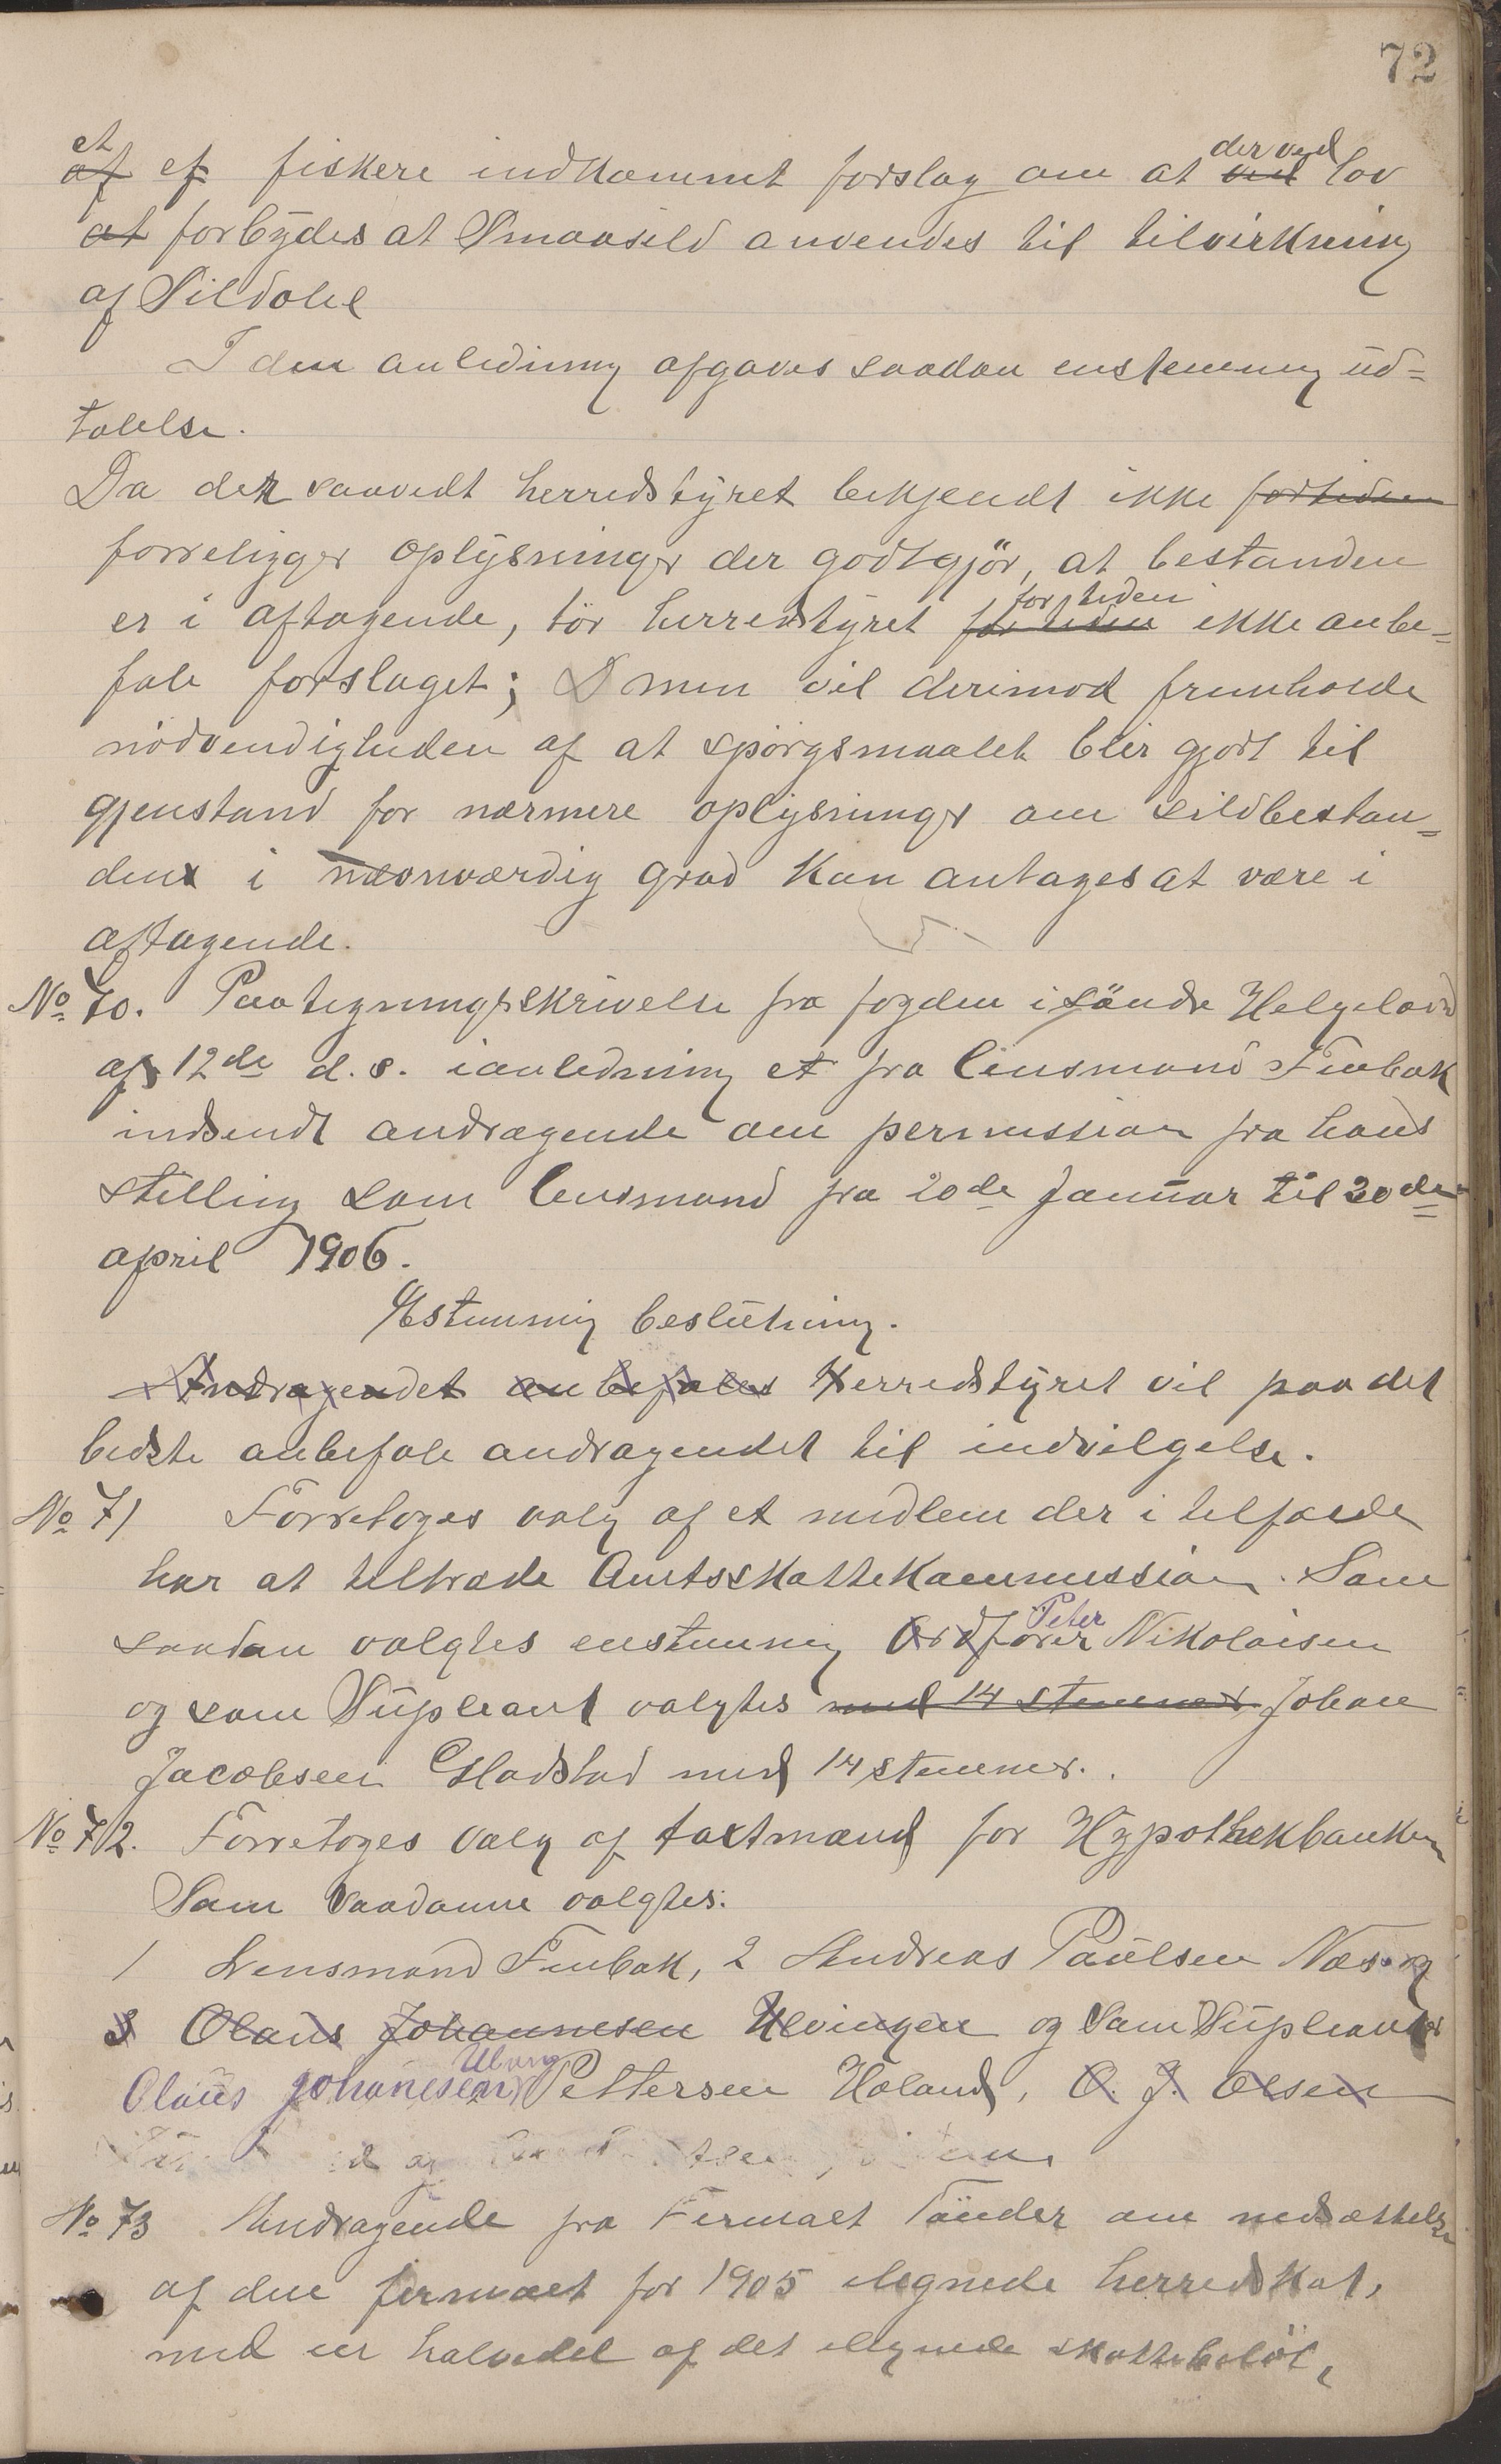 72
et der ved
af ef fiskere indkommet forslag om at ved lov
at forbydes at Smaasild anvendes til tilvirkning
af Sildolie
I den anledning afgaves saadan enstemmig ud=
talelse.
Da der saavidt herredstyret bekjendt ikke fortiden
forreligger oplysninger der godtgjör, at bestanden
for tiden
er i aftagende, tör herredstyret for tiden ikke anbe=
fale forslaget; men vil derimod fremholde
nödvendigheden af at spörgsmaalet blir gjort til
gjenstand for nærmere oplysninger om sildbestan=
den i nævnværdig grad kan antages at være i
aftagende.
No 70. Paategningsskrivelse fra fogden i söndre Helgeland
af 12de d.s. ianledning et fra lensmand Finbak
indsendt andragende om permission fra hans
stilling som lensmand fra 20de Januar til 20de
april 1906.
Estemmig beslutning.
Andragendet anbefales Herredstyret vil paa det
bedste anbefale andragendet til indvilgelse.
No 71 Forretoges valg af et medlem der i tilfælde
har at tiltræde Amtsskattekommission. Som
Peter
saadan valgtes enstemmig Ordförer Nikolaisen
og som Supleant valgtes med 14 stemmer Johan
Jacobsen Hladstad med 14 stemmer.
No 72. Forretoges valg af taxtmænd for Hypothekbanken
Som saadanne valgtes:
1 Lensmand Finbak, 2 Andreas Paulsen Næs og
3 Olaus Johannesen Ulvingen og som Supleanter
Ulving
Olaus Johanesen Pettersen Haland, O. J. Olsen
No 73 Andragende fra Firmaet Tönder om nedsættelse
af den firmaet for 1905 ilegnede herredskat,
med en halvedel af det ilegnede skattebelöb,